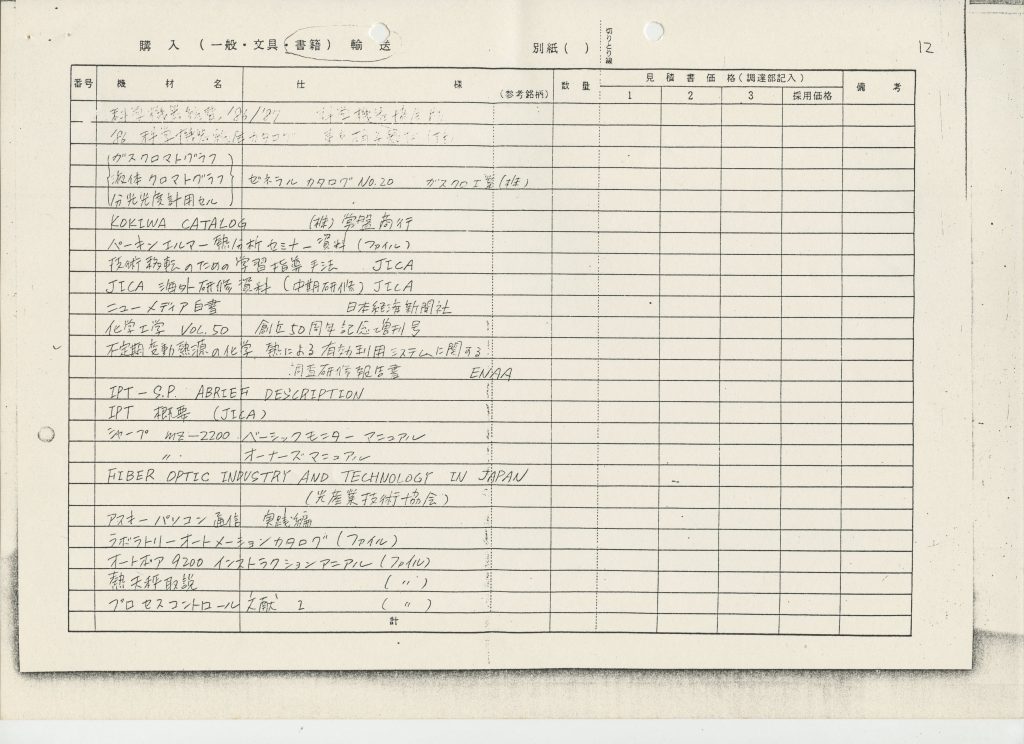 購入（一般・文具・書籍）輸送 別紙（ ） 切りとり線 12
番号 機材名 仕様（参考銘柄） 数量 見積書価格（調達部記入） 備考
1 2 3 採用価格
科学機器総覧 '86/'87 科学機器協会
科学機器 カタログ
ガスクロマトグラフ
液体クロマトグラフ ゼネラルカタログ NO.20 ガスクロ工業(株)
分光光度計用セル
KOKIWA CATALOG (株)常盤商行
パーキンエルマー熱分析セミナー資料(ファイル)
技術移転のための学習指導手法 JICA
JICA 海外研修資料(中期研修) JICA
ニューメディア白書 日本経済新聞社
化学工学 VOL.50 創立50周年記念増刊号
不定期変動熱源の化学 熱による有効利用システムに関する
調査研修報告書 ENAA
IPT-S.P. ABRIEF DESCRIPTION
IPT 概要 (JICA)
シャープ MZ-2200 ベーシックモニターマニュアル
〃 オーナーズマニュアル
FIBER OPTIC INDUSTRY AND TECHNOLOGY IN JAPAN
(光産業技術協会)
アスキーパソコン通信 実践編
ラボラトリーオートメーションカタログ(ファイル)
オートポア 9200 インストラクションマニアル(ファイル)
熱天秤取説 (〃)
プロセスコントロール文献 I (〃)
計